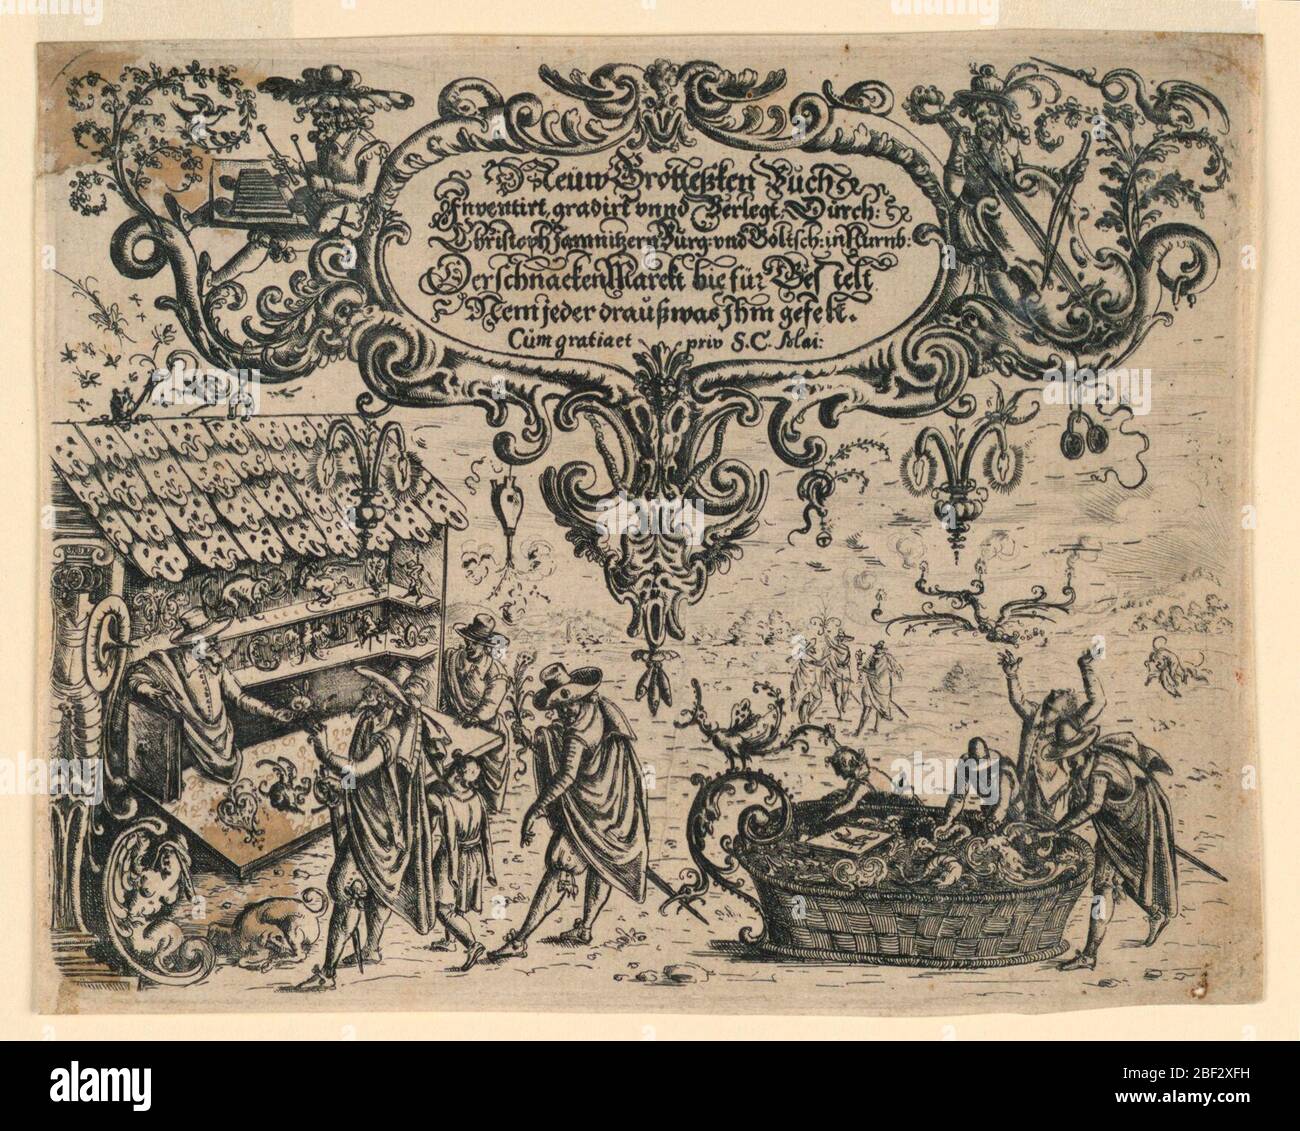 Neüw Grotteßken Buch
Inventirt, gradirt vnnd Verlegt. Dürch:
Christoph Jamnitzern Bürg: vnd Goltsch: in Nürnb:
Der schnacken Marckt hie für Bestelt
Nem jeder draüß was Ihm gefelt.
Cüm gratia et priv S. C. Mai:
alamy
alamy
Image ID: 2BF2XFH
www.alamy.com